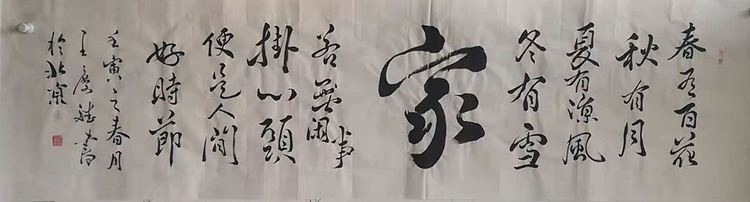 春有百花
秋有月
夏有凉風
冬有雪
家
若無閑事
掛心頭
便是人間
好時節
壬寅之春月
王
於北京